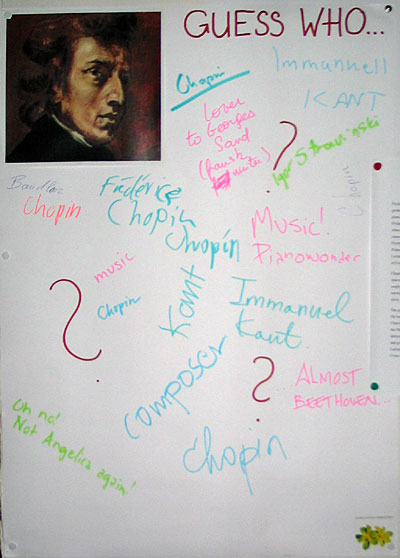 GUESS WHO...
Chopin
Immanuell
KANT
Lover
to Georges
Sand
?
Igor Strawinski
Chopin
Chopin
Fréderice
Chopin
Chopin
Music!
Pianowonder
music
Chopin
?
Kant
Immanuel
Kant.
composer
?
ALMOST
BEETHOVEN...
Oh no!
Not Angelica again!
Chopin